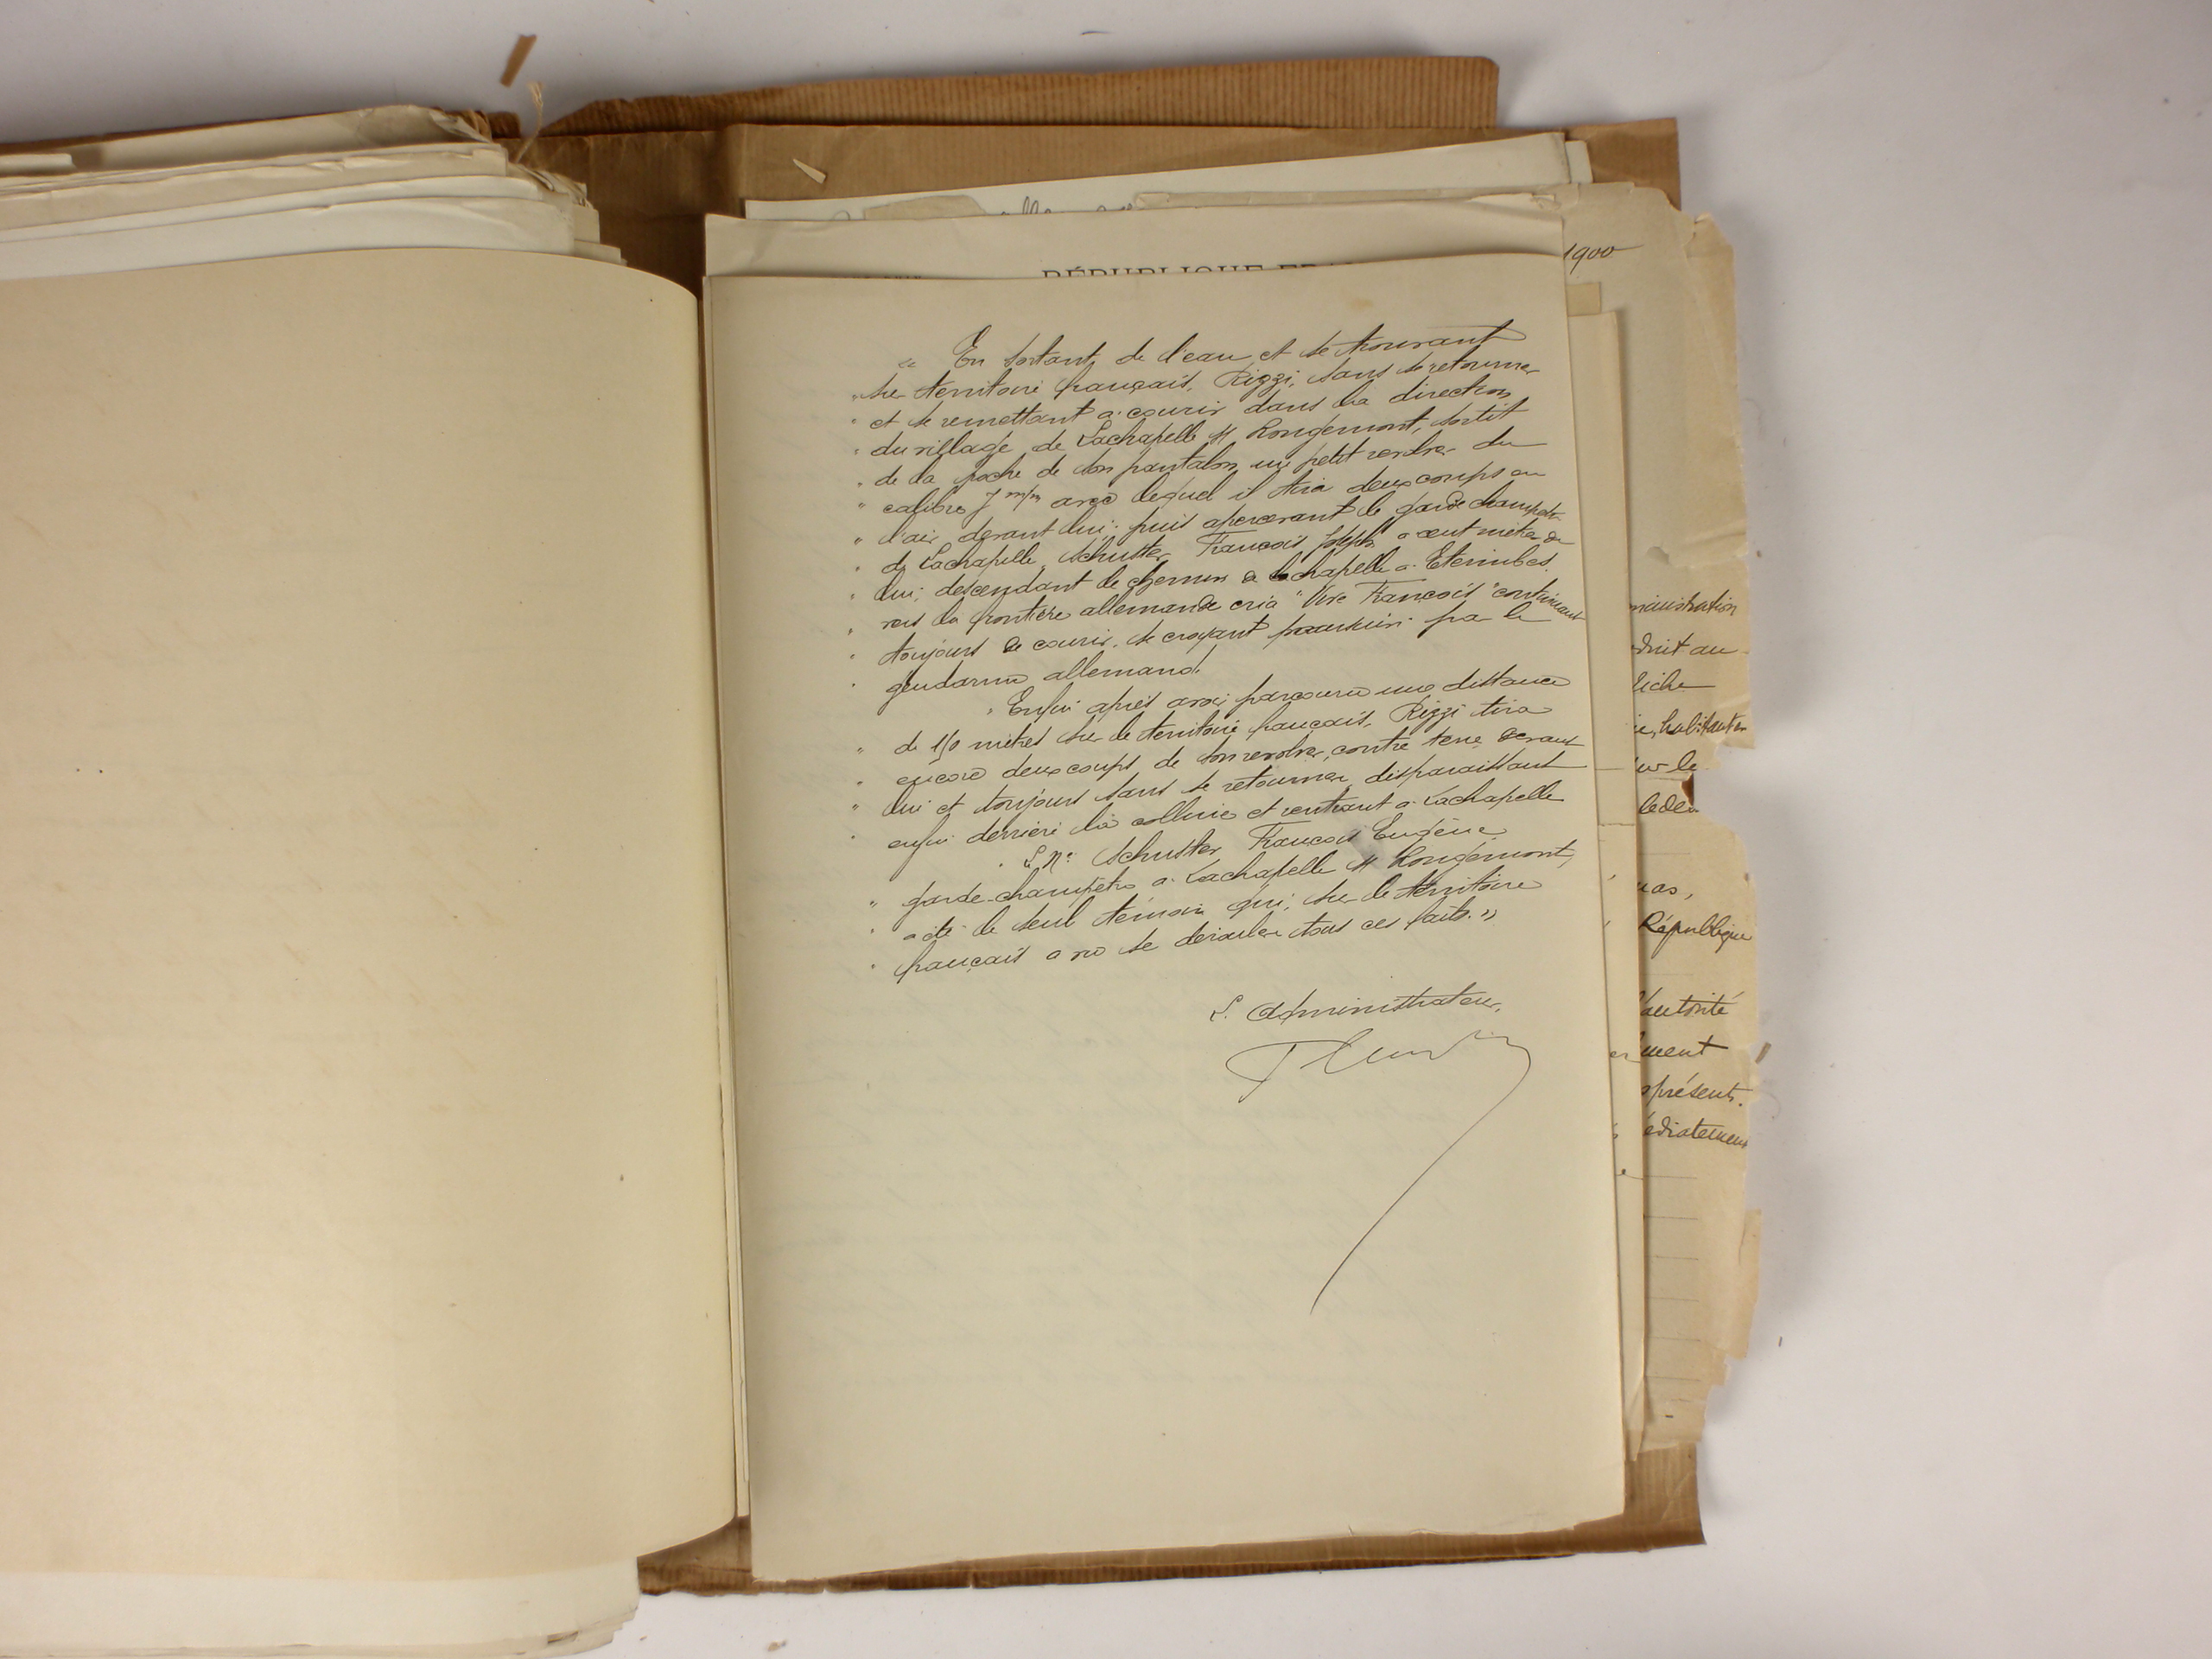 1900
RÉPUBLIQUE FRA
« En sortant de l'eau et se trouvant
" sur territoire français, Rizzi, sans se retourner
" et se remettant à courir dans la direction
" du village de Lachapelle s/s Rougemont, sortit
" de la poche de son pantalon un petit revolver du
" calibre 7 m/m avec lequel il tira deux coups en
" l'air devant lui; puis apercevant le garde champêtre
" de Lachapelle, Schuster François Joseph à cent mètres de
" lui, descendant le chemin de Lachapelle à Eteimbes
" vers la frontière allemande cria "Vive François" continuant
" toujours de courir, se croyant poursuivi par le
" gendarme allemand.
" Enfin après avoir parcouru une distance
" de 150 mètres sur le territoire français, Rizzi tira
" encore deux coups de son revolver, contre terre, devant
" lui et toujours sans se retourner, disparaissant
" enfin derrière la colline et rentrant à Lachapelle
" Le Né Schuster François Eugène
" garde-champêtre à Lachapelle s/s Rougemont,
" a été le seul témoin qui, sur le territoire
" français a vu se dérouler tous ces faits. »
L'administrateur,
ministration
duit au
liche
habitant
sur le
uas,
République
l'autorité
ment
présents.
édiatement